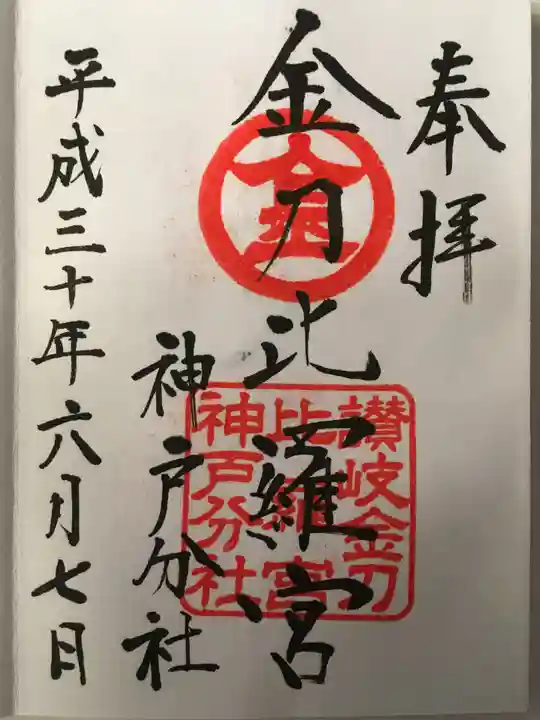 奉拝
金刀比羅宮
神戸分社
平成三十年六月七日
金
讃岐金刀
比羅宮
神戸分社